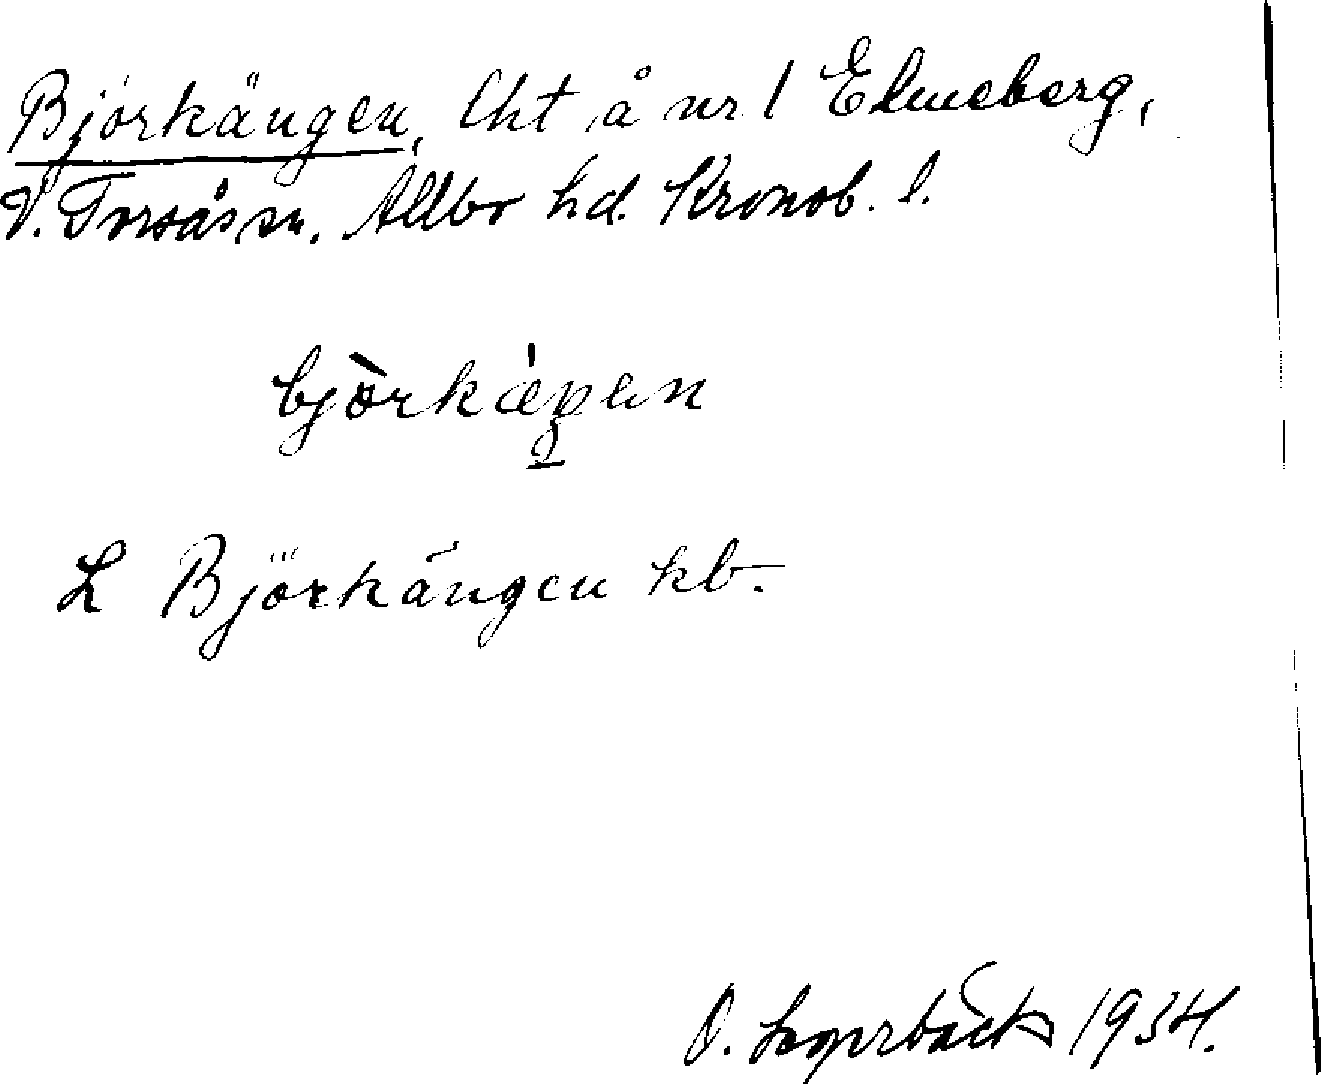 Björkängen, lht å nr 1 Elmeberg,
V. Torsås sn. Allbo hd. Kronob. l.
bjö̀rkæ̀ŋen
L Björkängen kb.
O. Lagerbäck 1934.